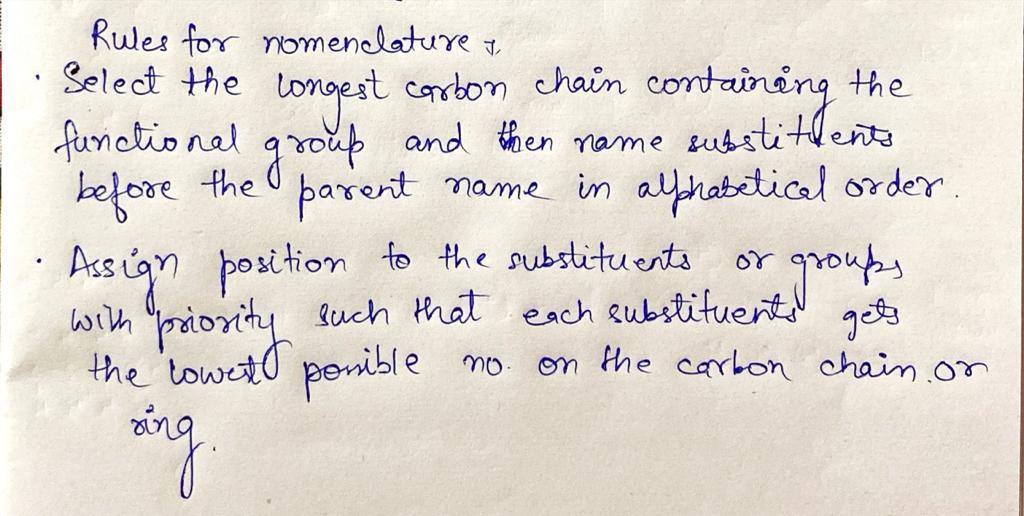 Rules for nomenclature :
• Select the longest carbon chain containing the
functional group and then name substituents
before the parent name in alphabetical order.
• Assign position to the substituents or groups
with priority such that each substituents gets
the lowest possible no. on the carbon chain or
ring.